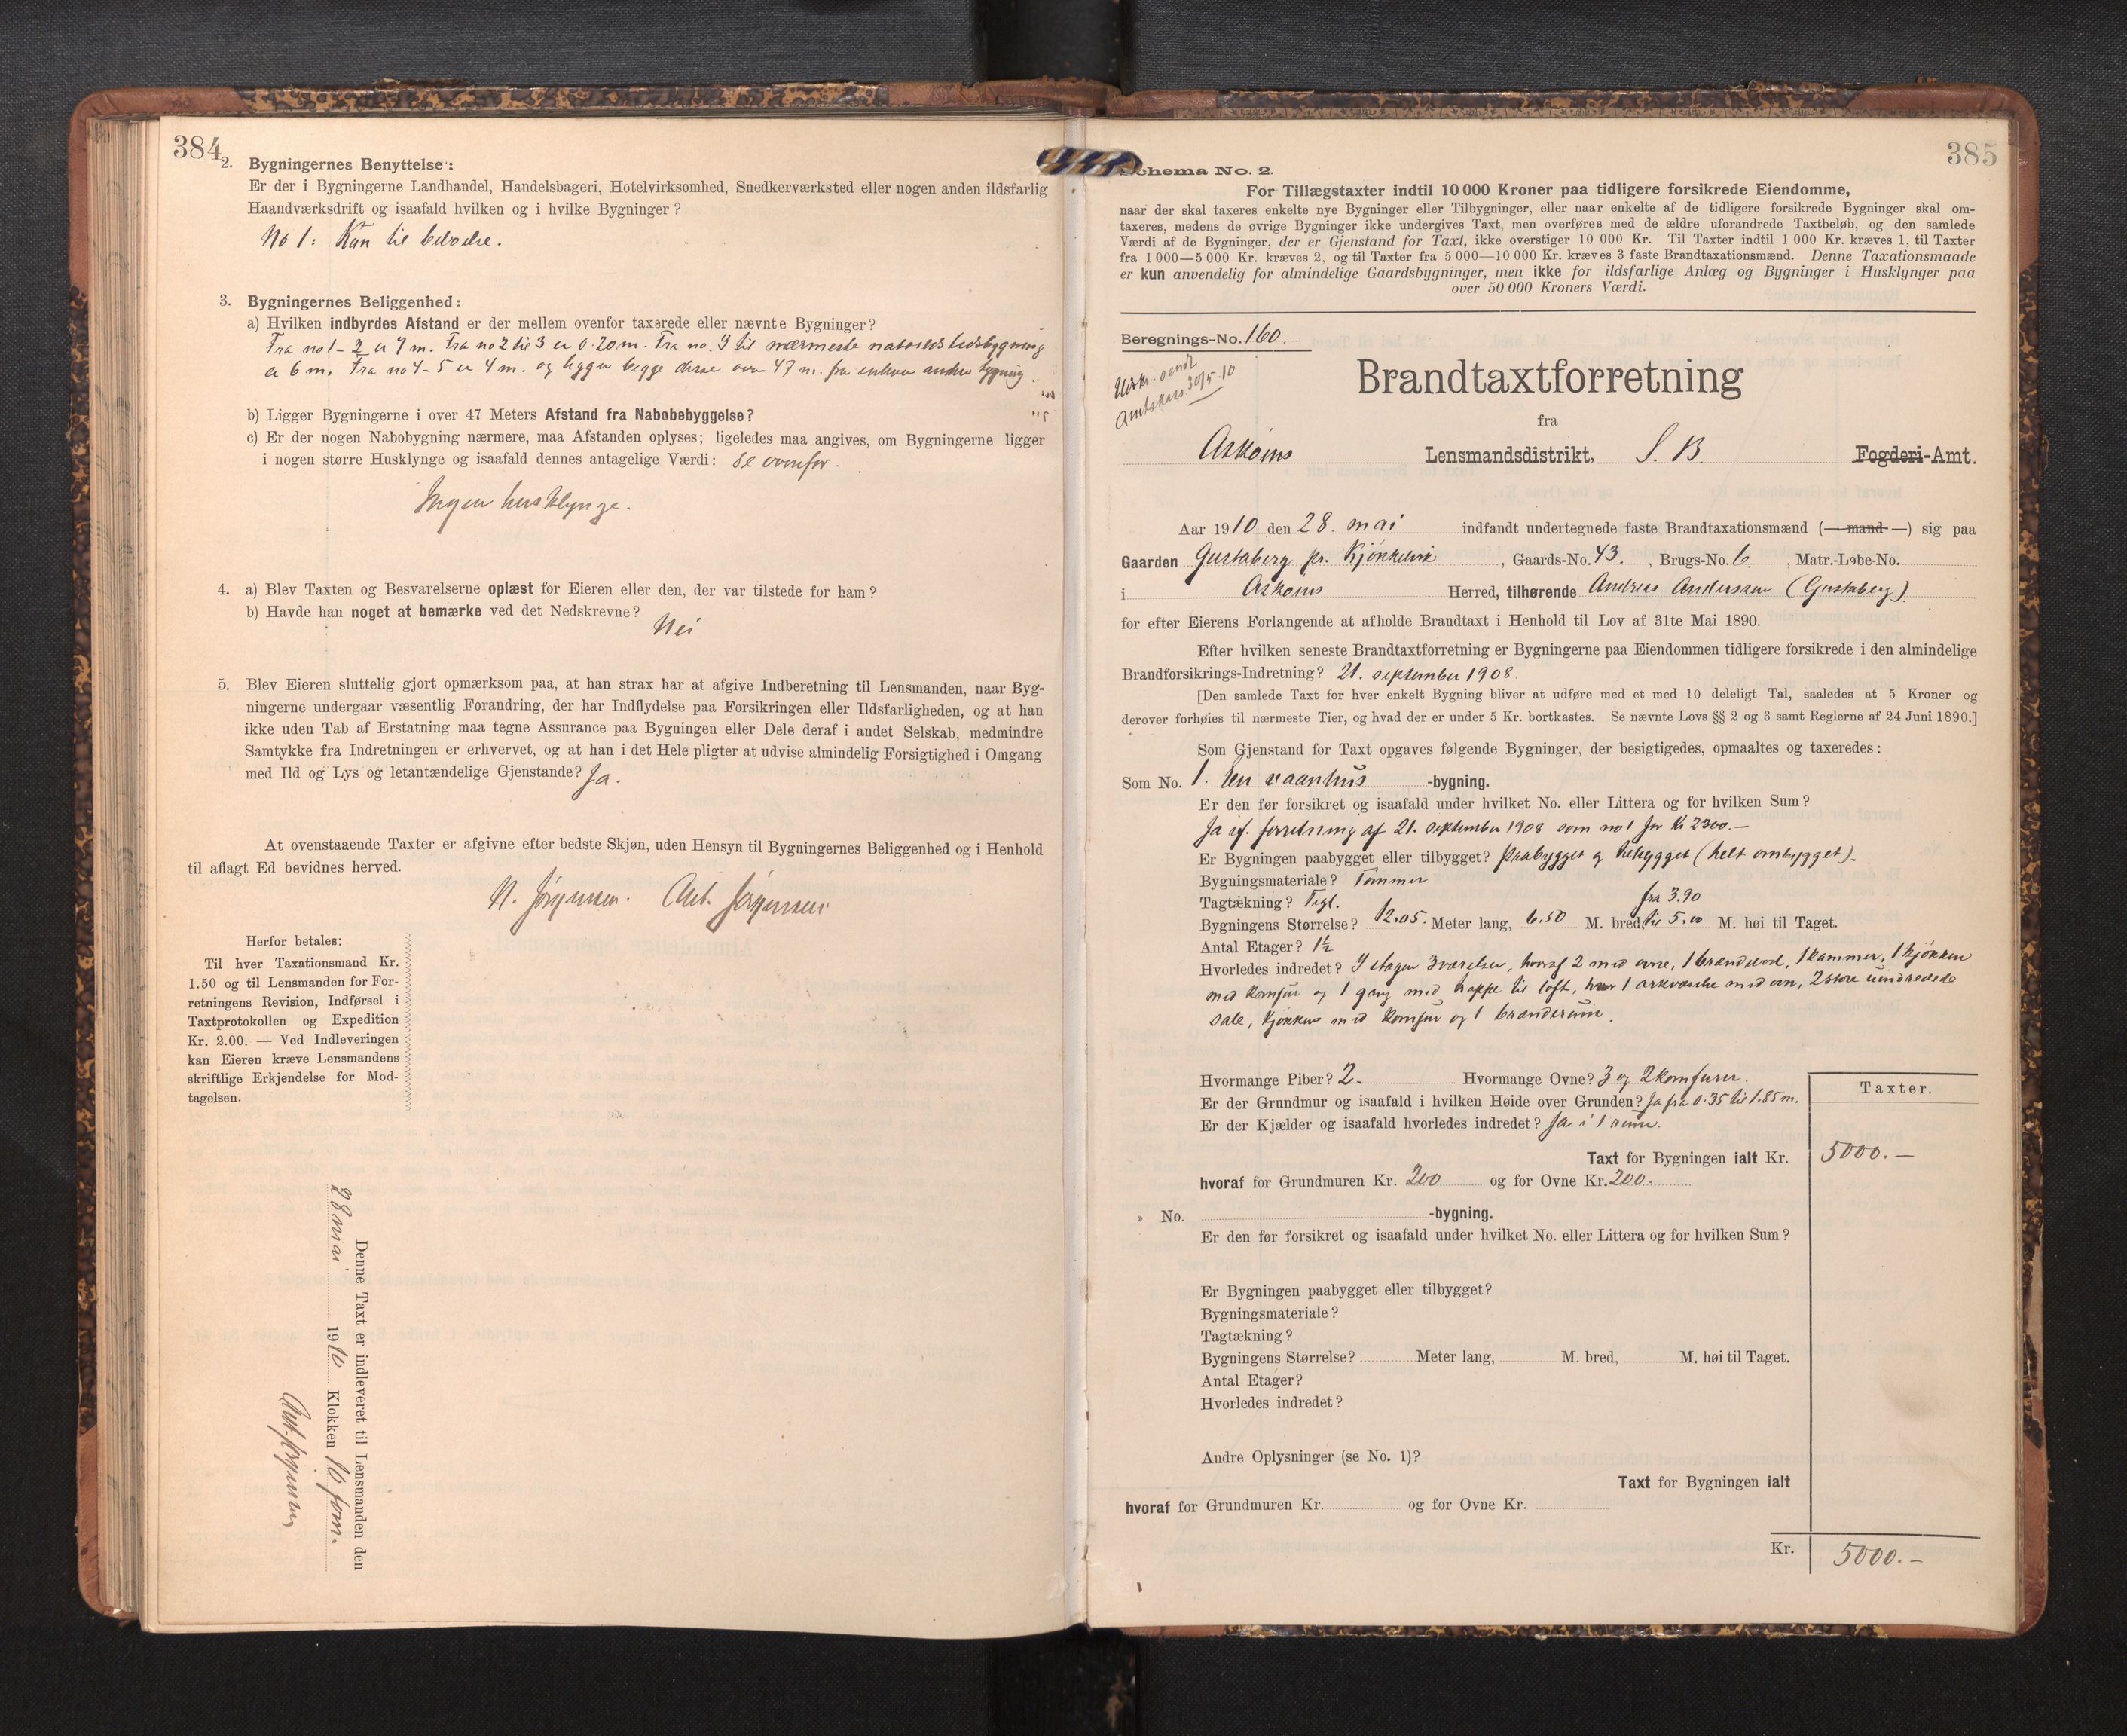 384
2. Bygningernes Benyttelse:
Er der i Bygningerne Landhandel, Handelsbageri, Hotelvirksomhed, Snedkerværksted eller nogen anden ildsfarlig
Haandværksdrift og isaafald hvilken og i hvilke Bygninger?
No 1: Kun til beboelse.
3. Bygningernes Beliggenhed:
a) Hvilken indbyrdes Afstand er der mellem ovenfor taxerede eller nævnte Bygninger?
Fra no 1 - 2 er 7 m. Fra no 2 til 3 er 0.20 m. Fra no. 3 til nærmeste
er 6 m. Fra no 4 - 5 er 4 m. og ligger begge disse over 47 m. fra enhver anden bygning.
b) Ligger Bygningerne i over 47 Meters Afstand fra Nabobebyggelse?
c) Er der nogen Nabobygning nærmere, maa Afstanden oplyses; ligeledes maa angives, om Bygningerne ligger
i nogen større Husklynge og isaafald dennes antagelige Værdi: Se ovenfor.
Ingen husklynge.
4. a) Blev Taxten og Besvarelserne oplæst for Eieren eller den, der var tilstede for ham?
b) Havde han noget at bemærke ved det Nedskrevne?
Nei
5. Blev Eieren sluttelig gjort opmærksom paa, at han strax har at afgive Indberetning til Lensmanden, naar Byg-
ningerne undergaar væsentlig Forandring, der har Indflydelse paa Forsikringen eller Ildsfarligheden, og at han
ikke uden Tab af Erstatning maa tegne Assurance paa Bygningen eller Dele deraf i andet Selskab, medmindre
Samtykke fra Indretningen er erhvervet, og at han i det Hele pligter at udvise almindelig Forsigtighed i Omgang
med Ild og Lys og letantændelige Gjenstande? Ja.
At ovenstaaende Taxter er afgivne efter bedste Skjøn, uden Hensyn til Bygningernes Beliggenhed og i Henhold
til aflagt Ed bevidnes herved.
N. Jørgensen. Ant. Jørgensen
Herfor betales:
Til hver Taxationsmand Kr.
1.50 og til Lensmanden for For-
retningens Revision, Indførsel i
Taxtprotokollen og Expedition
Kr. 2.00. — Ved Indleveringen
kan Eieren kræve Lensmandens
skriftlige Erkjendelse for Mod-
tagelsen.
Denne Taxt er indleveret til Lensmanden den
28 mai 1910 Klokken 10 form.
Ant. Jørgensen
385
Schema No. 2.
For Tillægstaxter indtil 10 000 Kroner paa tidligere forsikrede Eiendomme,
naar der skal taxeres enkelte nye Bygninger eller Tilbygninger, eller naar enkelte af de tidligere forsikrede Bygninger skal om-
taxeres, medens de øvrige Bygninger ikke undergives Taxt, men overføres med de ældre uforandrede Taxtbeløb, og den samlede
Værdi af de Bygninger, der er Gjenstand for Taxt, ikke overstiger 10 000 Kr. Til Taxter indtil 1 000 Kr. kræves 1, til Taxter
fra 1 000—5 000 Kr. kræves 2, og til Taxter fra 5 000—10 000 Kr. kræves 3 faste Brandtaxationsmænd. Denne Taxationsmaade
er kun anvendelig for almindelige Gaardsbygninger, men ikke for ildsfarlige Anlæg og Bygninger i Husklynger paa
over 50 000 Kroners Værdi.
Beregnings-No. 160.
Udskr. sendt
30/5.10
Brandtaxtforretning
fra
Askøens Lensmandsdistrikt, S. B. Fogderi-Amt.
Aar 1910 den 28. mai indfandt undertegnede faste Brandtaxationsmænd (— mand —) sig paa
Gaarden Gustaberg pr. Kjøkkelvik, Gaards-No. 43., Brugs-No. 6, Matr.-Løbe-No.
i Askøens Herred, tilhørende Andreas Andersen (Gustaberg)
for efter Eierens Forlangende at afholde Brandtaxt i Henhold til Lov af 31te Mai 1890.
Efter hvilken seneste Brandtaxtforretning er Bygningerne paa Eiendommen tidligere forsikrede i den almindelige
Brandforsikrings-Indretning? 21. september 1908.
[Den samlede Taxt for hver enkelt Bygning bliver at udføre med et med 10 deleligt Tal, saaledes at 5 Kroner og
derover forhøies til nærmeste Tier, og hvad der er under 5 Kr. bortkastes. Se nævnte Lovs §§ 2 og 3 samt Reglerne af 24 Juni 1890.]
Som Gjenstand for Taxt opgaves følgende Bygninger, der besigtigedes, opmaaltes og taxeredes:
Som No. 1. En vaanhus -bygning.
Er den før forsikret og isaafald under hvilket No. eller Littera og for hvilken Sum?
Ja if. forretning af 21. september 1908 som no 1 for Kr 2300.—
Er Bygningen paabygget eller tilbygget? Paabygget og tilbygget (helt ombygget).
Bygningsmateriale? Tømmer
Tagtækning? Tegl. fra 3.90
Bygningens Størrelse? 12.05. Meter lang, 6.50 M. bred, til 5.00 M. høi til Taget.
Antal Etager? 1½
Hvorledes indredet? I etagen 3 værelser, hvoraf 2 med ovne, 1 , 1 kammer, 1 kjøkken
med komfur og 1 gang med trappe til loft, hvor 1 arkværelse med ovn, 2 store uindredede
sale, kjøkken med komfur og 1 brænderum.
Hvormange Piber? 2. Hvormange Ovne? 3 og 2 komfurer.
Er der Grundmur og isaafald i hvilken Høide over Grunden? Ja fra 0.35 til 1.85 m.
Er der Kjælder og isaafald hvorledes indredet? Ja i 1 rum.
Taxter.
Taxt for Bygningen ialt Kr. 5000.—
hvoraf for Grundmuren Kr. 200 og for Ovne Kr. 200.
» No. -bygning.
Er den før forsikret og isaafald under hvilket No. eller Littera og for hvilken Sum?
Er Bygningen paabygget eller tilbygget?
Bygningsmateriale?
Tagtækning?
Bygningens Størrelse? Meter lang, M. bred, M. høi til Taget.
Antal Etager?
Hvorledes indredet?
Andre Oplysninger (se No. 1)?
Taxt for Bygningen ialt
hvoraf for Grundmuren Kr. og for Ovne Kr.
Kr. 5000.—